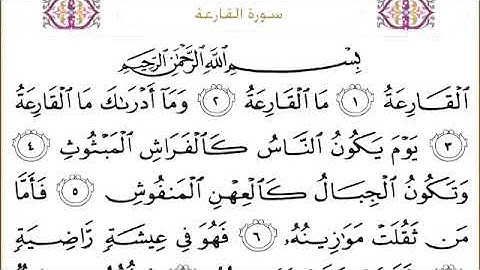 سورة القارعة
بِسْمِ اللَّهِ الرَّحْمَٰنِ الرَّحِيمِ
الْقَارِعَةُ ١ مَا الْقَارِعَةُ ٢ وَمَا أَدْرَىٰكَ مَا الْقَارِعَةُ
٣ يَوْمَ يَكُونُ النَّاسُ كَالْفَرَاشِ الْمَبْثُوثِ ٤
وَتَكُونُ الْجِبَالُ كَالْعِهْنِ الْمَنفُوشِ ٥ فَأَمَّا
مَن ثَقُلَتْ مَوَٰزِينُهُۥ ٦ فَهُوَ فِي عِيشَةٍ رَّاضِيَةٍ